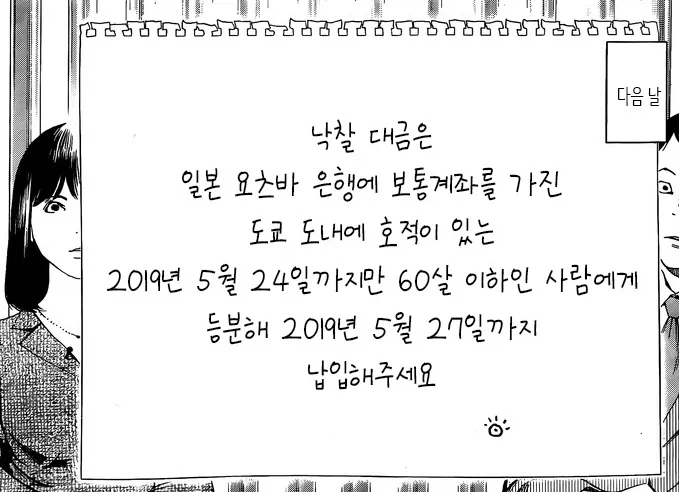 다음 날
낙찰 대금은
일본 요츠바 은행에 보통계좌를 가진
도쿄 도내에 호적이 있는
2019년 5월 24일까지만 60살 이하인 사람에게
등분해 2019년 5월 27일까지
납입해주세요